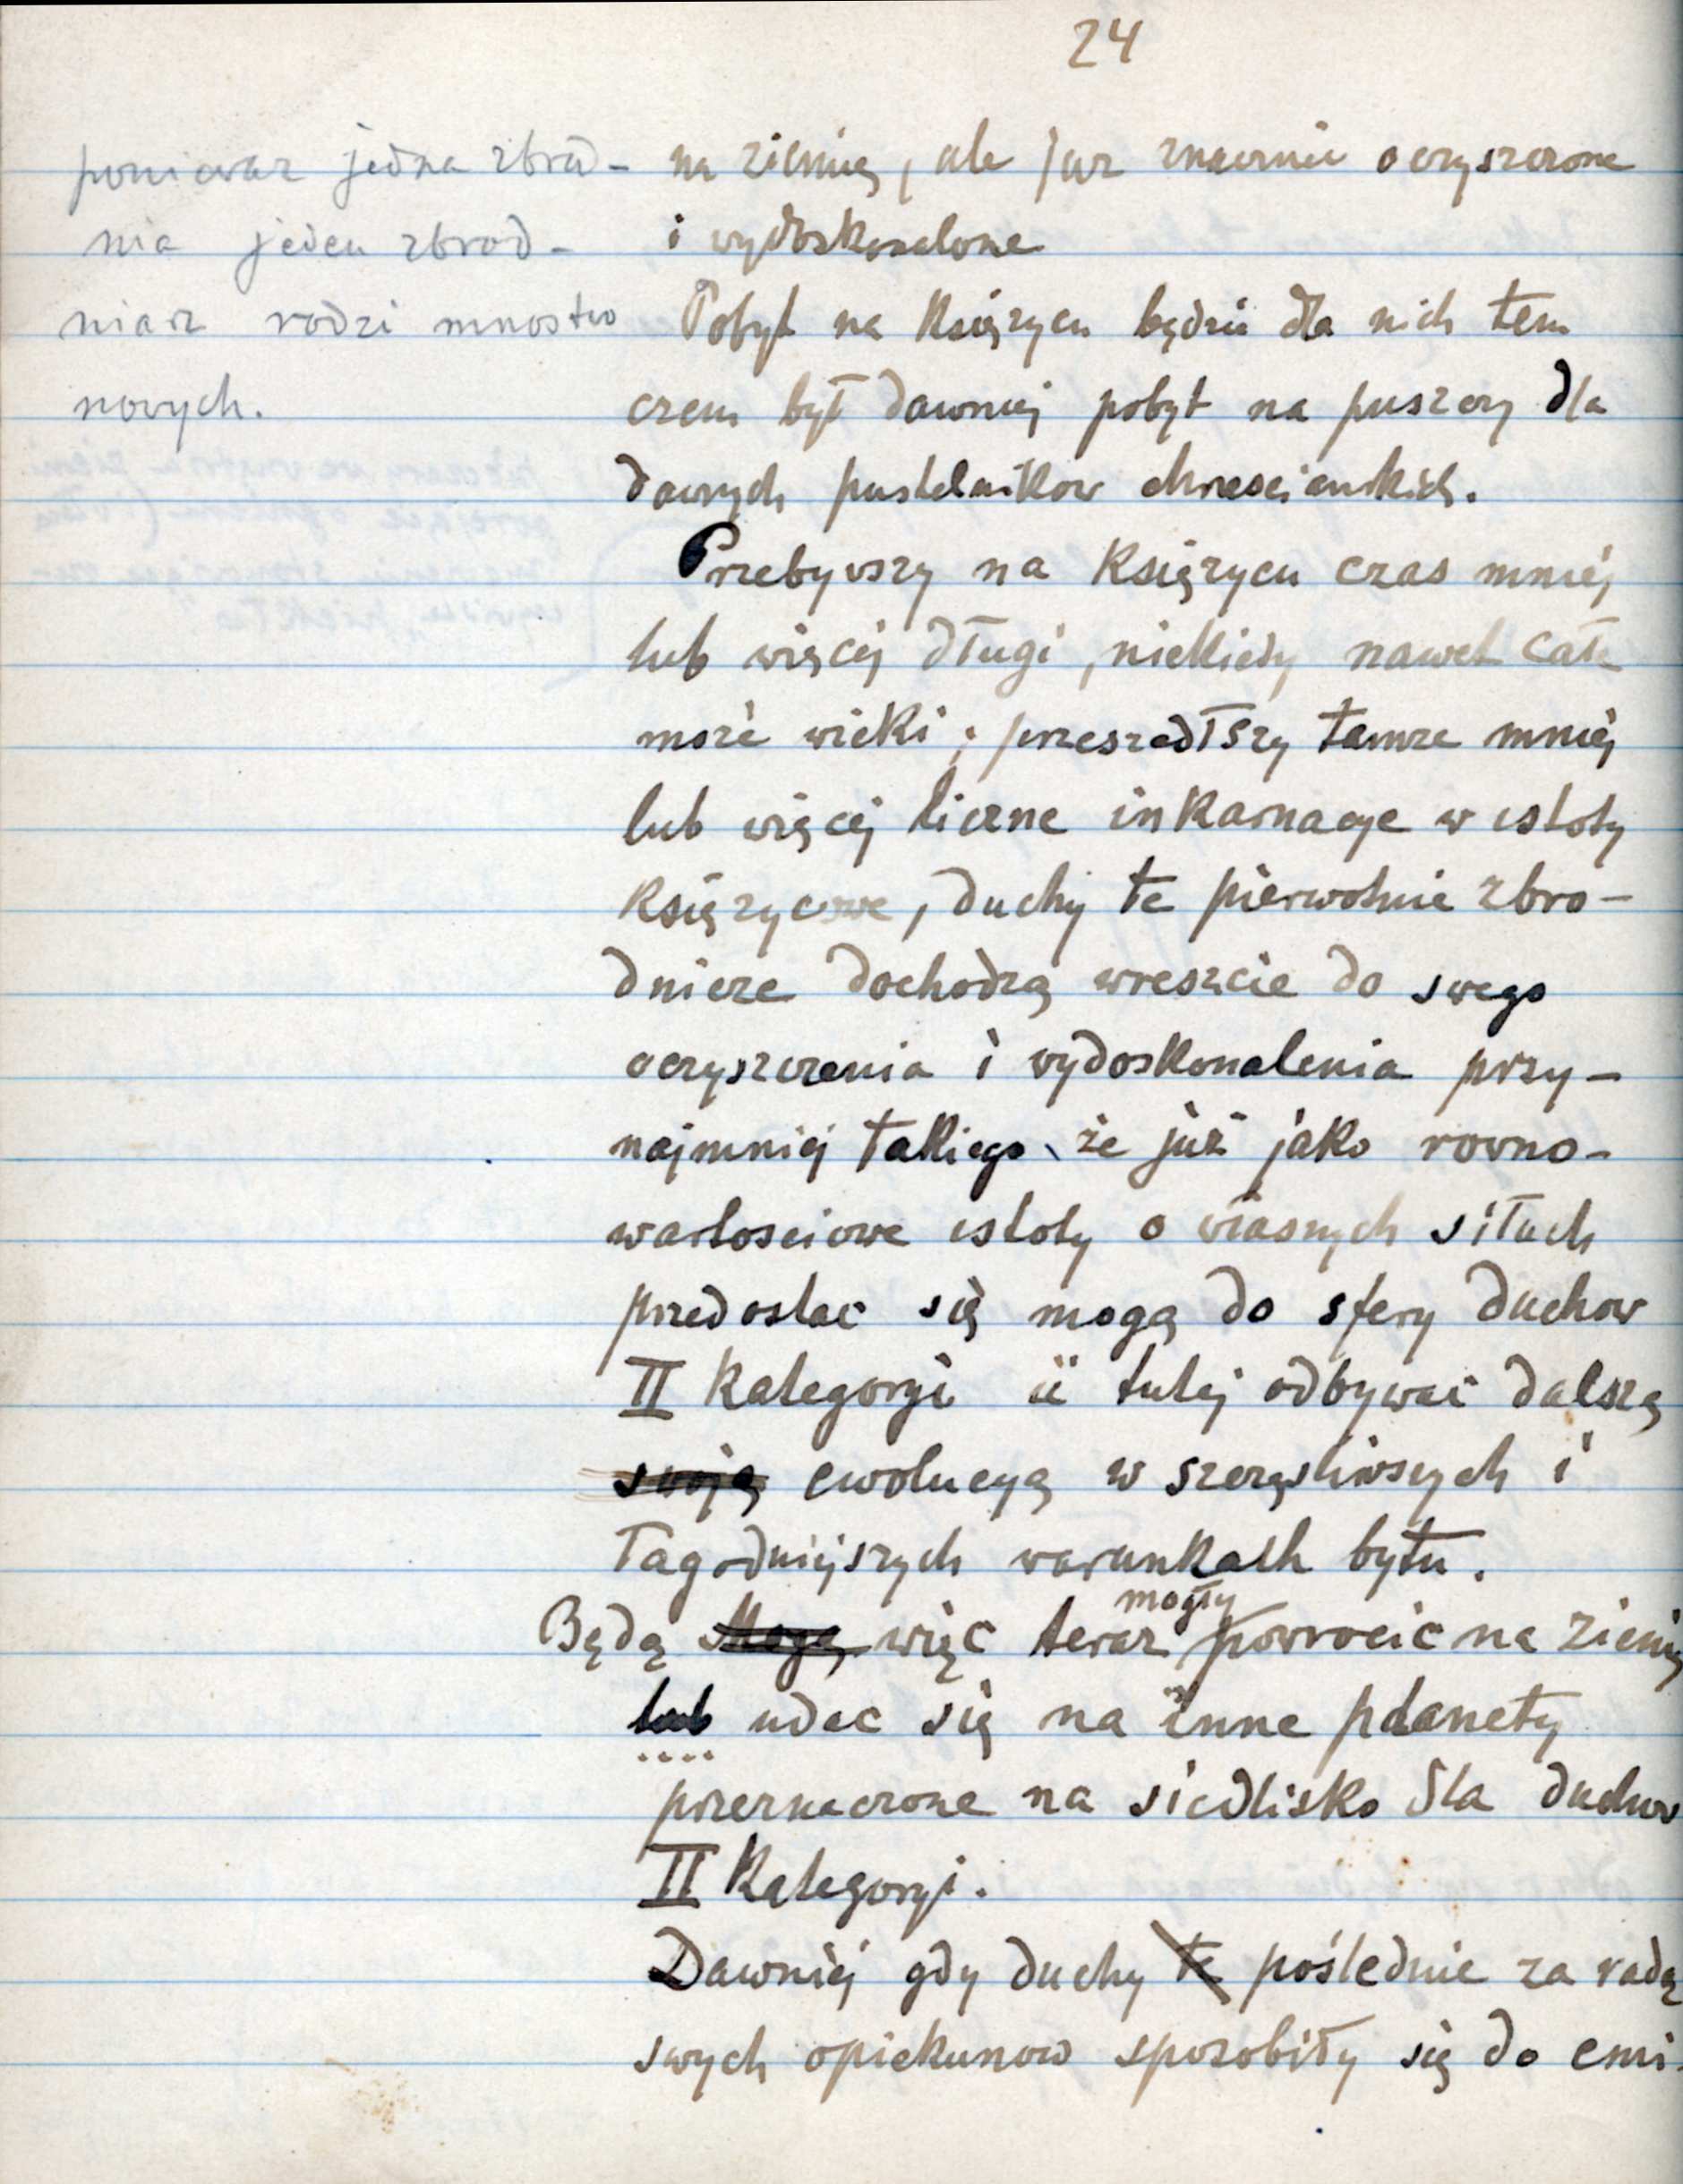 24
ponieważ jedna zbrod-
nia jeden zbrod-
niarz rodzi mnostwo
nowych.
na ziemię, ale już znacznie oczyszczone
i wydoskonalone
Pobyt na Księzycu będzie dla nich tem
czem był dawniej pobyt na puszczy dla
dawnych pustelnikow chrzescianskich.
Przebywszy na Księzycu czas mniej
lub więcej długi, niekiedy nawet całe
może wieki; przeszedłszy tamze mniej
lub więcej liczne inkarnacye w istoty
Księzycowe, duchy te pierwotnie zbro-
dnicze dochodzą wreszcie do swego
oczyszczenia i wydoskonalenia przy-
najmniej takiego, że już jako rowno-
wartosciowe istoty o własnych siłach
przedostac się mogą do sfery duchow
II Kategoryi i tutej odbywać dalszą
swoją ewolucyą w szczęsliwszych i
łagodniejszych warunkach bytu.
Będą Mogą więc teraz mogły powrocic na ziemię
lub udac się na inne planety
przeznaczone na siedlisko dla duchow
II Kategoryi.
Dawniej gdy duchy te poślednie za radą
swych opiekunow sposobiły się do emi-